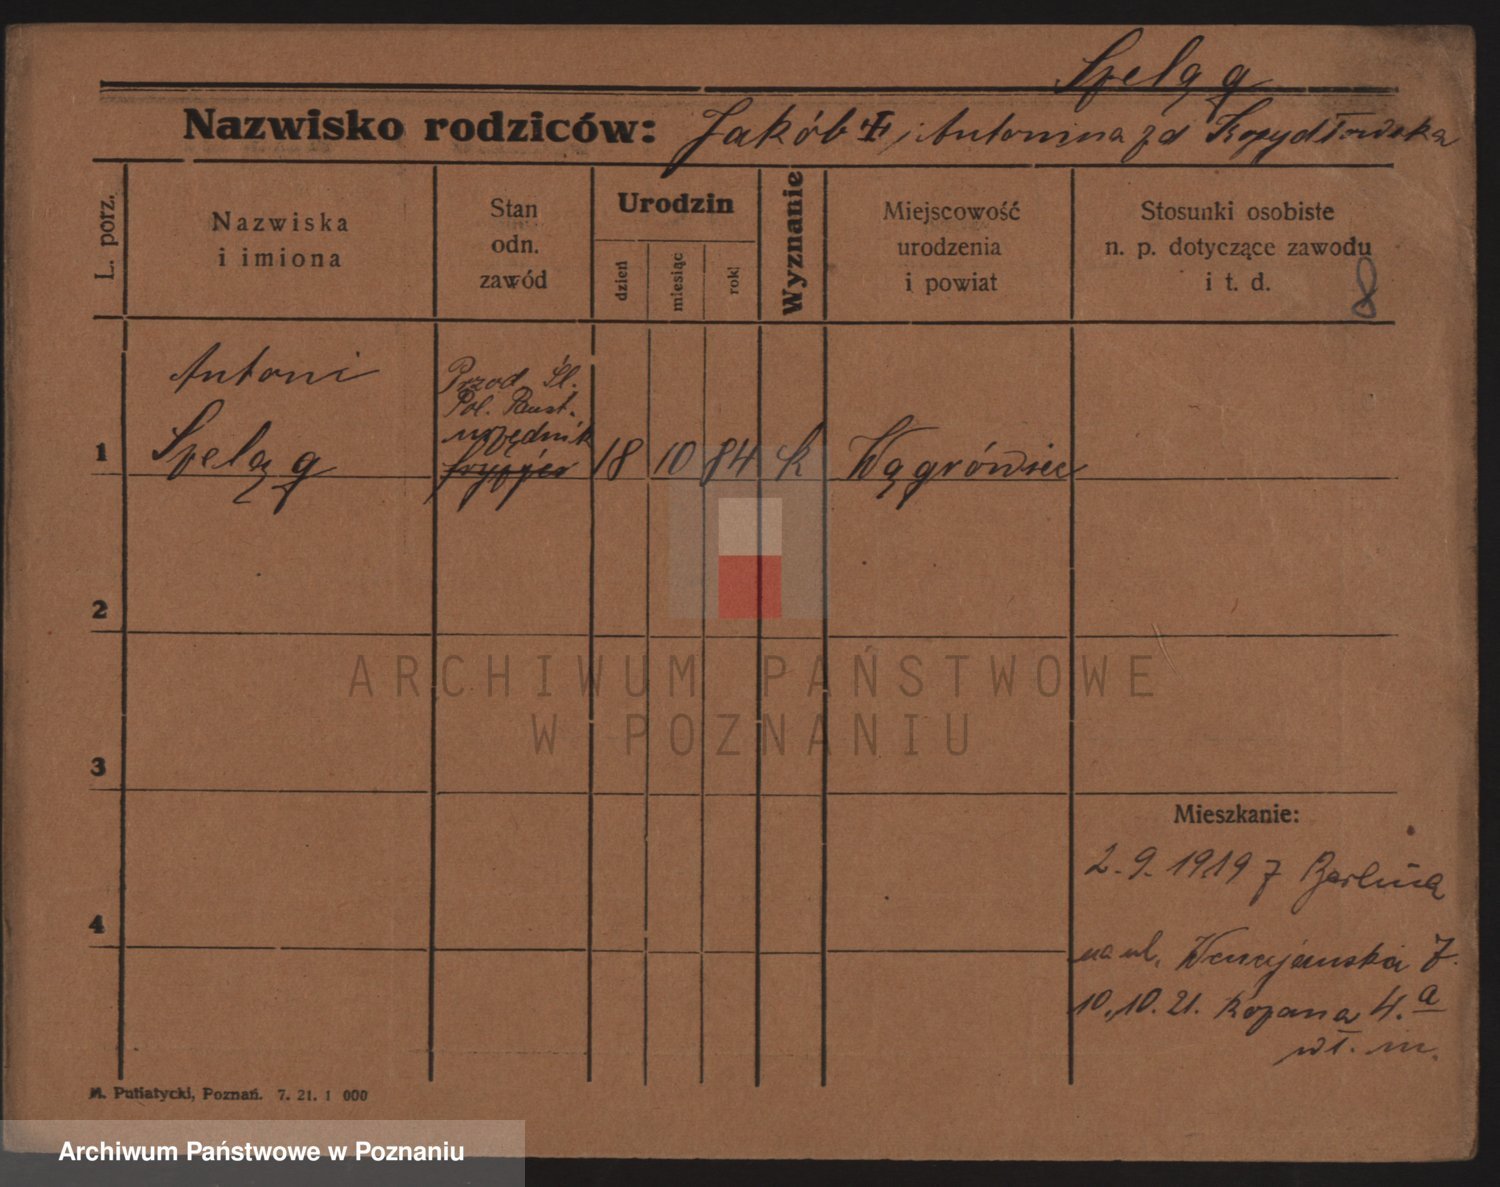 Szeląg
Nazwisko rodziców: Jakób i Antonina zd Kozydłowska
L. porz.
Nazwiska
i imiona
Stan
odn.
zawód
Urodzin
dzień
miesiąc
rok
Wyznanie
Miejscowość
urodzenia
i powiat
Stosunki osobiste
n. p. dotyczące zawodu
i t. d.
8
Antoni
Przod Śl.
Pol. Państ.
urzędnik
1
Szeląg
18
10
84
k
Wągrówiec
2
ARCHIWUM PAŃSTWOWE
W POZNANIU
3
Mieszkanie:
2.9.1919 z Berlina
4
na ul. Wenecjańska 7.
10.10.21. Kopana 4.a
wł. m.
M. Putiatycki, Poznań. 7. 21. 1 000
Archiwum Państwowe w Poznaniu